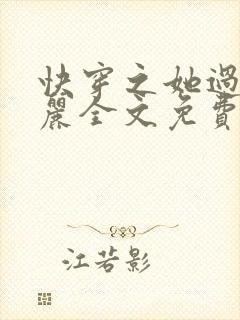 快穿之她過
麗全文免費
江若影